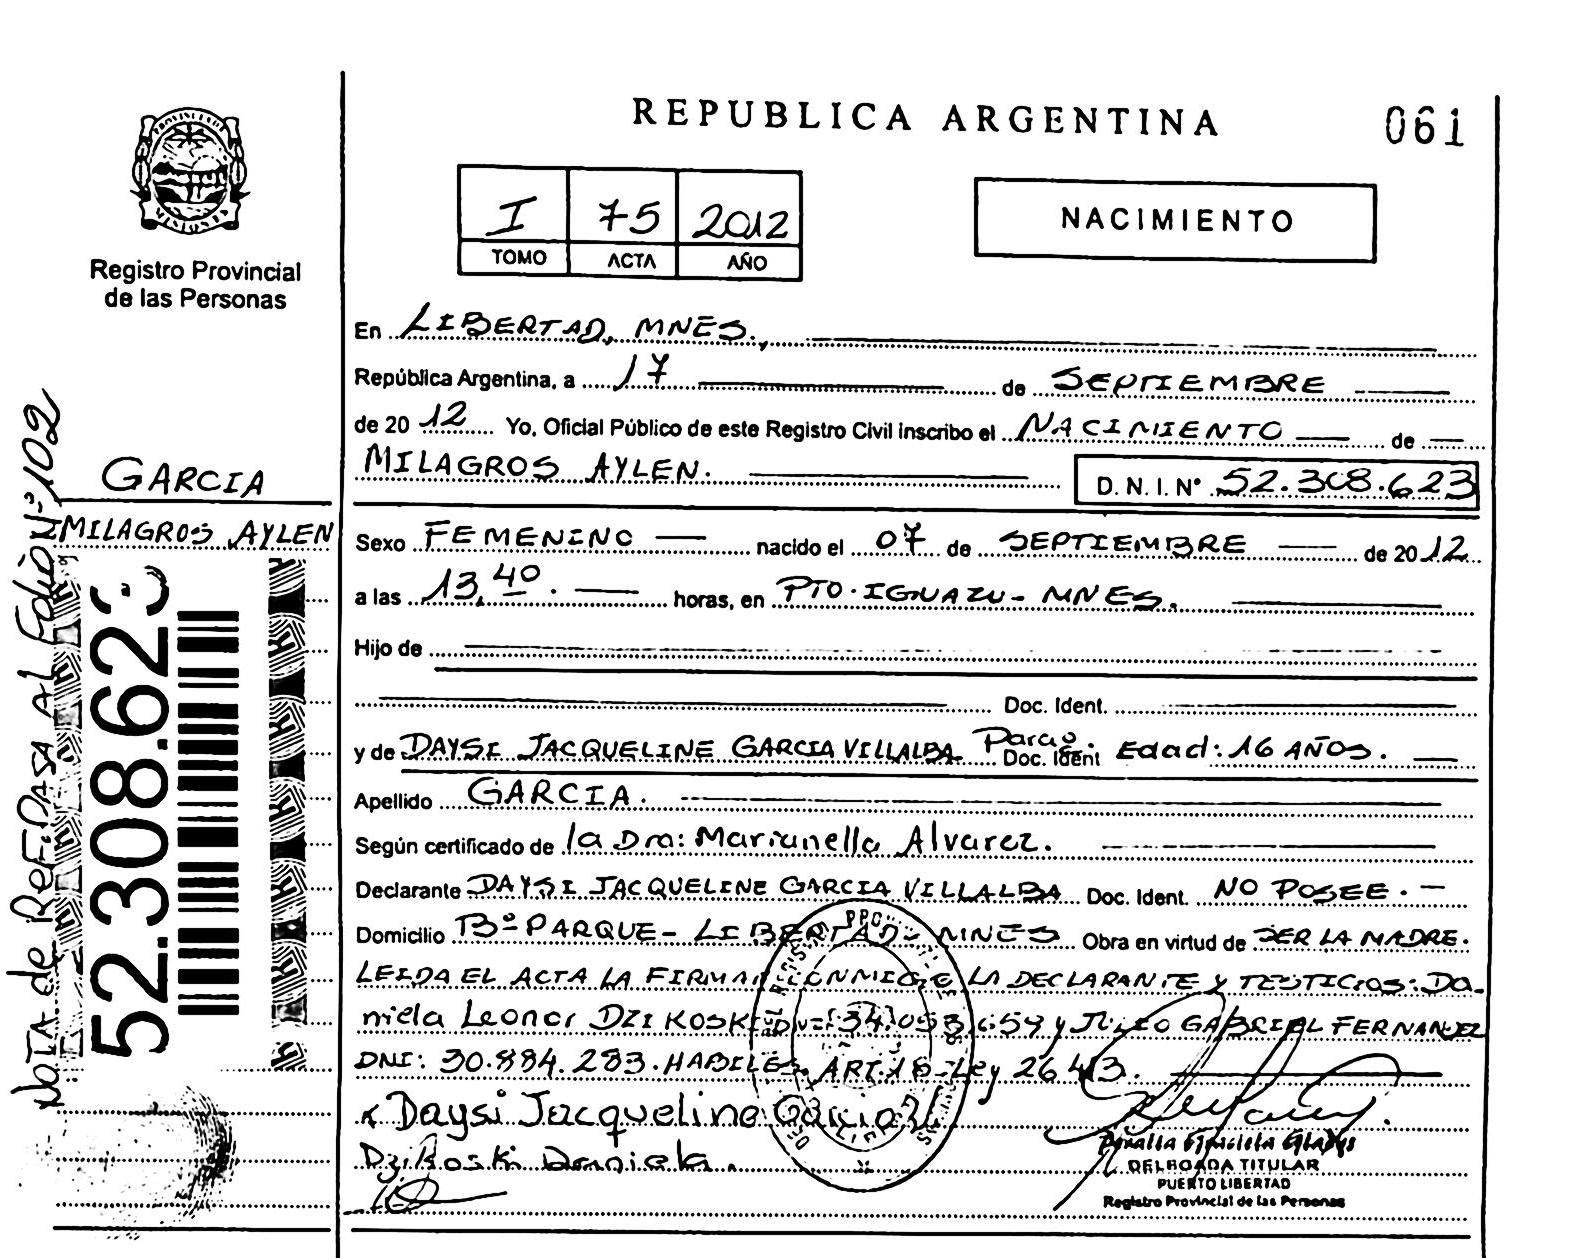 REPUBLICA ARGENTINA
061
PROVINCIA DE MISIONES
Registro Provincial
de las Personas
I 75 2012
TOMO ACTA AÑO
NACIMIENTO
En LIBERTAD, MNES.,
República Argentina, a 17 de SEPTIEMBRE
de 2012 Yo, Oficial Público de este Registro Civil inscribo el NACIMIENTO de
MILAGROS AYLEN.
D.N.I. Nº 52.308.623
Sexo FEMENINO nacido el 07 de SEPTIEMBRE de 2012
a las 13,40. horas, en PTO. IGUAZU - MNES.
Hijo de
Doc. Ident.
y de DAYSI JACQUELINE GARCIA VILLALBA Parag. Doc. Ident Edad: 16 AÑOS.
Apellido GARCIA.
Según certificado de la Dra: Marianella Alvarez.
Declarante DAYSI JACQUELINE GARCIA VILLALBA Doc. Ident. NO POSEE.
Domicilio Bº PARQUE - LIBERTAD - MNES Obra en virtud de SER LA MADRE.
LEIDA EL ACTA LA FIRMAN CONMIGO LA DECLARANTE Y TESTIGOS: Da-
niela Leonor DZIKOSKI 34.053.654 y JULIO GABRIEL FERNANDEZ
DNI: 30.884.283. HABILES. ART.18 - Ley 26413.
x Daysi Jacqueline Garcia V
Dzikoski Daniela.
DELEGADA TITULAR
PUERTO LIBERTAD
Registro Provincial de las Personas
GARCIA
MILAGROS AYLEN
52.308.623
NOTA de REF. PASA AL Folio Nº 102